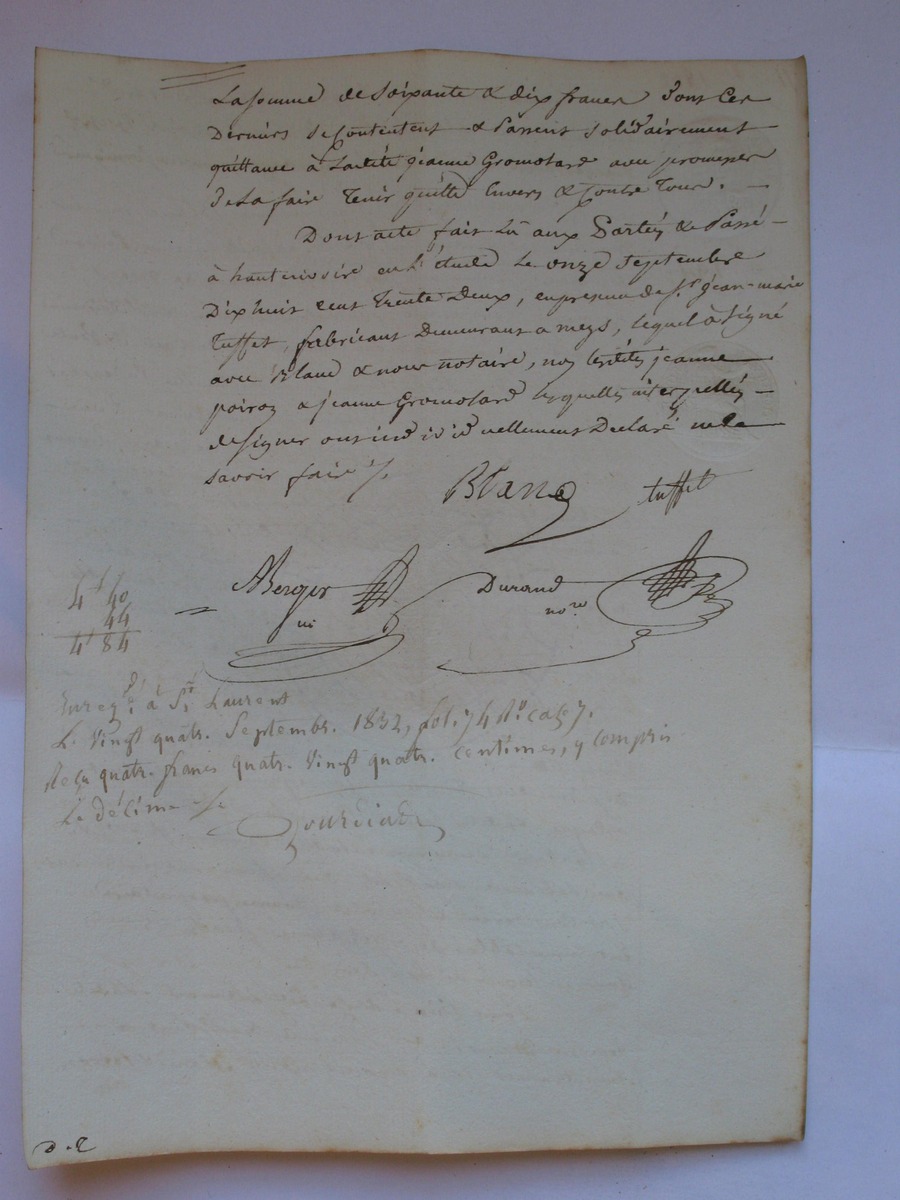 La somme de soixante & dix francs dont Ces
Derniers se Contentent & Passent solidairement
quittance à Ladite jeanne Gromotard avec promesse
de La faire Tenir quitte Envers & Contre Tous. —
Dont acte fait Lû aux Parties & Passé —
à hauterivoire en L'étude Le onze septembre
Dix huit cent Trente Deux, en presence de Sr. jean-marie
Tuffet, fabricant Demeurant a meys, lequel à signé
avec Blanc & nous notaire, non lesdites jeanne
poiroz & jeanne Gromotard lesquelles interpellées —
de signer ont individuellement Declaré ne le
savoir faire ./.
Blanc tuffet
ABerger Durand
nre
4f 40
44
4f 84
Enregé à St Laurent
le vingt quatre Septembre 1832, fol. 74 Ro case 7.
Reçu quatre francs quatre vingt quatre centimes, y compris
le décime ./.
D. T